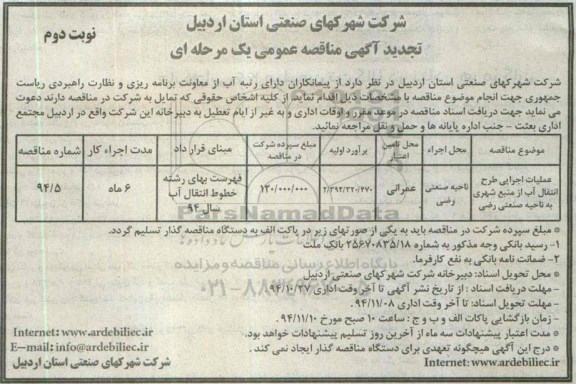 شرکت شهرکهای صنعتی استان اردبیل
نوبت دوم
تجدید آگهی مناقصه عمومی یک مرحله ای
شرکت شهرکهای صنعتی استان اردبیل در نظر دارد از پیمانکاران دارای رتبه آب از معاونت برنامه ریزی و نظارت راهبردی ریاست
جمهوری جهت انجام موضوع مناقصه با مشخصات ذیل اقدام نماید. از کلیه اشخاص حقوقی که تمایل به شرکت در مناقصه دارند دعوت
می نماید جهت دریافت اسناد مناقصه در موعد مقرر و اوقات اداری و به غیر از ایام تعطیل به دبیرخانه این شرکت واقع در اردبیل مجتمع
اداری بعثت - جنب اداره پایانه ها و حمل و نقل مراجعه نمائید.
موضوع مناقصه محل اجراء محل تامین اعتبار برآورد اولیه مبلغ سپرده شرکت در مناقصه مبنای قرار داد مدت اجراء کار شماره مناقصه
عملیات اجرایی طرح انتقال آب از منبع شهری به ناحیه صنعتی رضی ناحیه صنعتی رضی عمرانی ۲/۳۹۲/۳۲۰/۴۷۰ ۱۲۰/۰۰۰/۰۰۰ فهرست بهای رشته خطوط انتقال آب سال ۹۴ ۶ ماه ۹۴/۵
* مبلغ سپرده شرکت در مناقصه باید به یکی از صورتهای زیر در پاکت الف به دستگاه مناقصه گذار تسلیم گردد.
۱- رسید بانکی وجه مذکور به شماره ۲۵۶۷۰۸۳۵/۱۸ بانک ملت
۲- ضمانت نامه بانکی به نفع کارفرما.
* محل تحویل اسناد: دبیرخانه شرکت شهرکهای صنعتی اردبیل
- مهلت دریافت اسناد : از تاریخ نشر آگهی تا آخر وقت اداری ۹۴/۱۰/۲۷
- مهلت تحویل اسناد: تا آخر وقت اداری ۹۴/۱۱/۰۸
- زمان بازگشایی پاکات الف و ب و ج : ساعت ۱۰ صبح مورخ ۹۴/۱۱/۱۰
* مدت اعتبار پیشنهادات سه ماه از آخرین روز تسلیم پیشنهادات خواهد بود.
* درج این آگهی هیچگونه تعهدی برای دستگاه مناقصه گذار ایجاد نمی کند.
Internet: www.ardebiliec.ir
Internet: www.ardebiliec.ir
E-mail: info@ardebiliec.ir
شرکت شهرکهای صنعتی استان اردبیل
ParsNamadData
پایگاه اطلاع رسانی مناقصه و مزایده